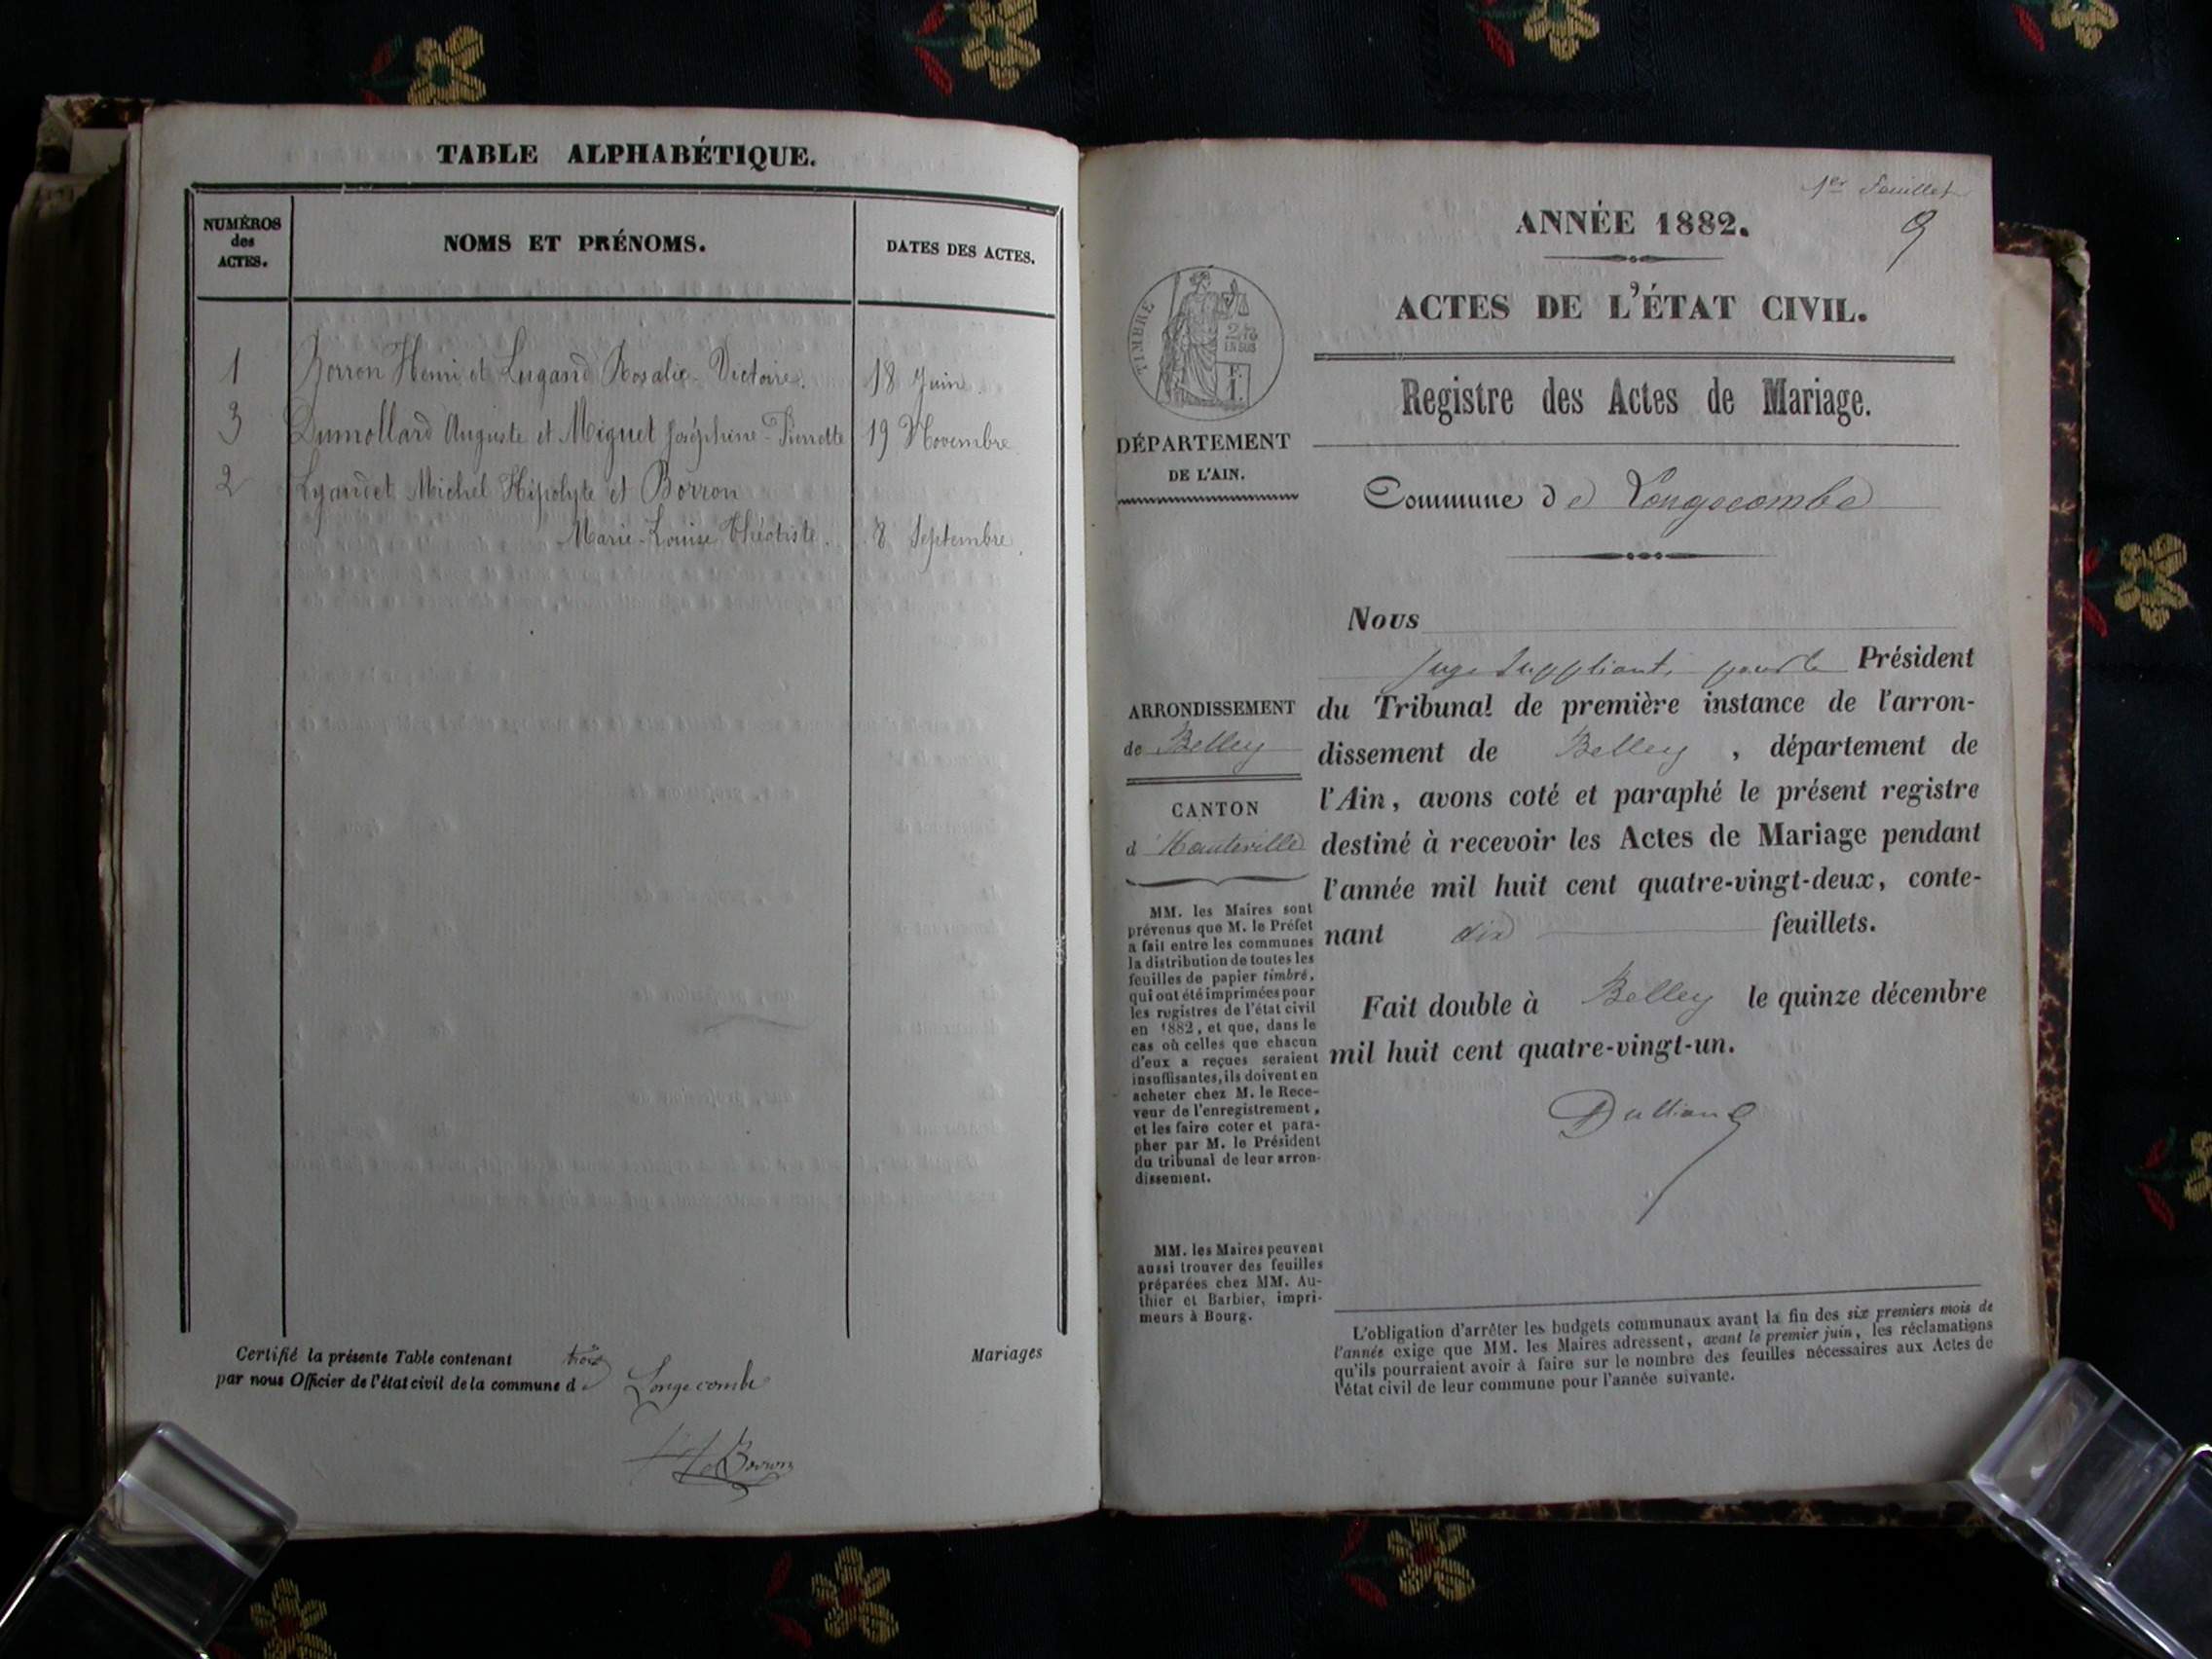 TABLE ALPHABÉTIQUE.
NUMÉROS
des
ACTES.
NOMS ET PRÉNOMS.
DATES DES ACTES.
1 Borron Henri et Lugand Rosalie-Victoire. 18 Juin.
3 Dumollard Auguste et Miguet Joséphine-Pierrette 19 Novembre.
2 Lyaudet Michel Hipolyte et Borron
Marie-Louise Théotiste. 8 Septembre.
Certifié la présente Table contenant trois Mariages
par nous Officier de l'état civil de la commune de Longecombe
Borron
1er Feuillet
9
ANNÉE 1882.
ACTES DE L'ÉTAT CIVIL.
TIMBRE
2/10
EN SUS
F.
1.
Registre des Actes de Mariage.
DÉPARTEMENT
DE L'AIN.
Commune de Longecombe
Nous
juge suppléant, pour le Président
du Tribunal de première instance de l'arron-
dissement de Belley, département de
l'Ain, avons coté et paraphé le présent registre
destiné à recevoir les Actes de Mariage pendant
l'année mil huit cent quatre-vingt-deux, conte-
nant dix feuillets.
Fait double à Belley le quinze décembre
mil huit cent quatre-vingt-un.
ARRONDISSEMENT
de Belley
CANTON
d'Hauteville
MM. les Maires sont
prévenus que M. le Préfet
a fait entre les communes
la distribution de toutes les
feuilles de papier timbré,
qui ont été imprimées pour
les registres de l'état civil
en 1882, et que, dans le
cas où celles que chacun
d'eux a reçues seraient
insuffisantes, ils doivent en
acheter chez M. le Rece-
veur de l'enregistrement,
et les faire coter et para-
pher par M. le Président
du tribunal de leur arron-
dissement.
MM. les Maires peuvent
aussi trouver des feuilles
préparées chez MM. Au-
thier et Barbier, impri-
meurs à Bourg.
L'obligation d'arrêter les budgets communaux avant la fin des six premiers mois de
l'année exige que MM. les Maires adressent, avant le premier juin, les réclamations
qu'ils pourraient avoir à faire sur le nombre des feuilles nécessaires aux Actes de
l'état civil de leur commune pour l'année suivante.